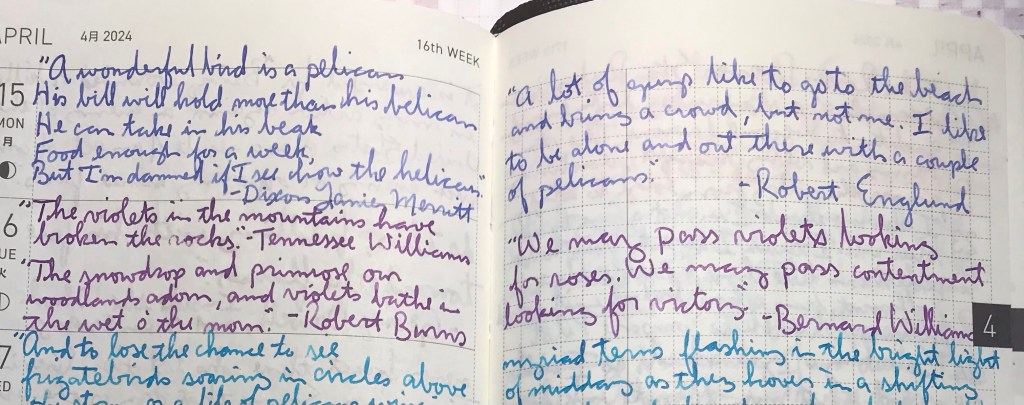 APRIL 4月 2024
16th WEEK
15
MON
月
"A wonderful bird is a pelican
His bill will hold more than his belican
He can take in his beak
Food enough for a week,
But I'm damned if I see how the helican."
-Dixon Lanier Merritt
6
UE
"The violets in the mountains have
broken the rocks." -Tennessee Williams
"The snowdrop and primrose our
woodlands adorn, and violets bathe in
the wet o' the morn." -Robert Burns
7
ED
"And to lose the chance to see
frigatebirds soaring in circles above
"A lot of guys like to go to the beach
and bring a crowd, but not me. I like
to be alone and out there with a couple
of pelicans." -Robert Englund
"We may pass violets looking
for roses. We may pass contentment
looking for victory" -Bernard Williams
4
myriad terns flashing in the bright light
of midday as they hover in a shifting